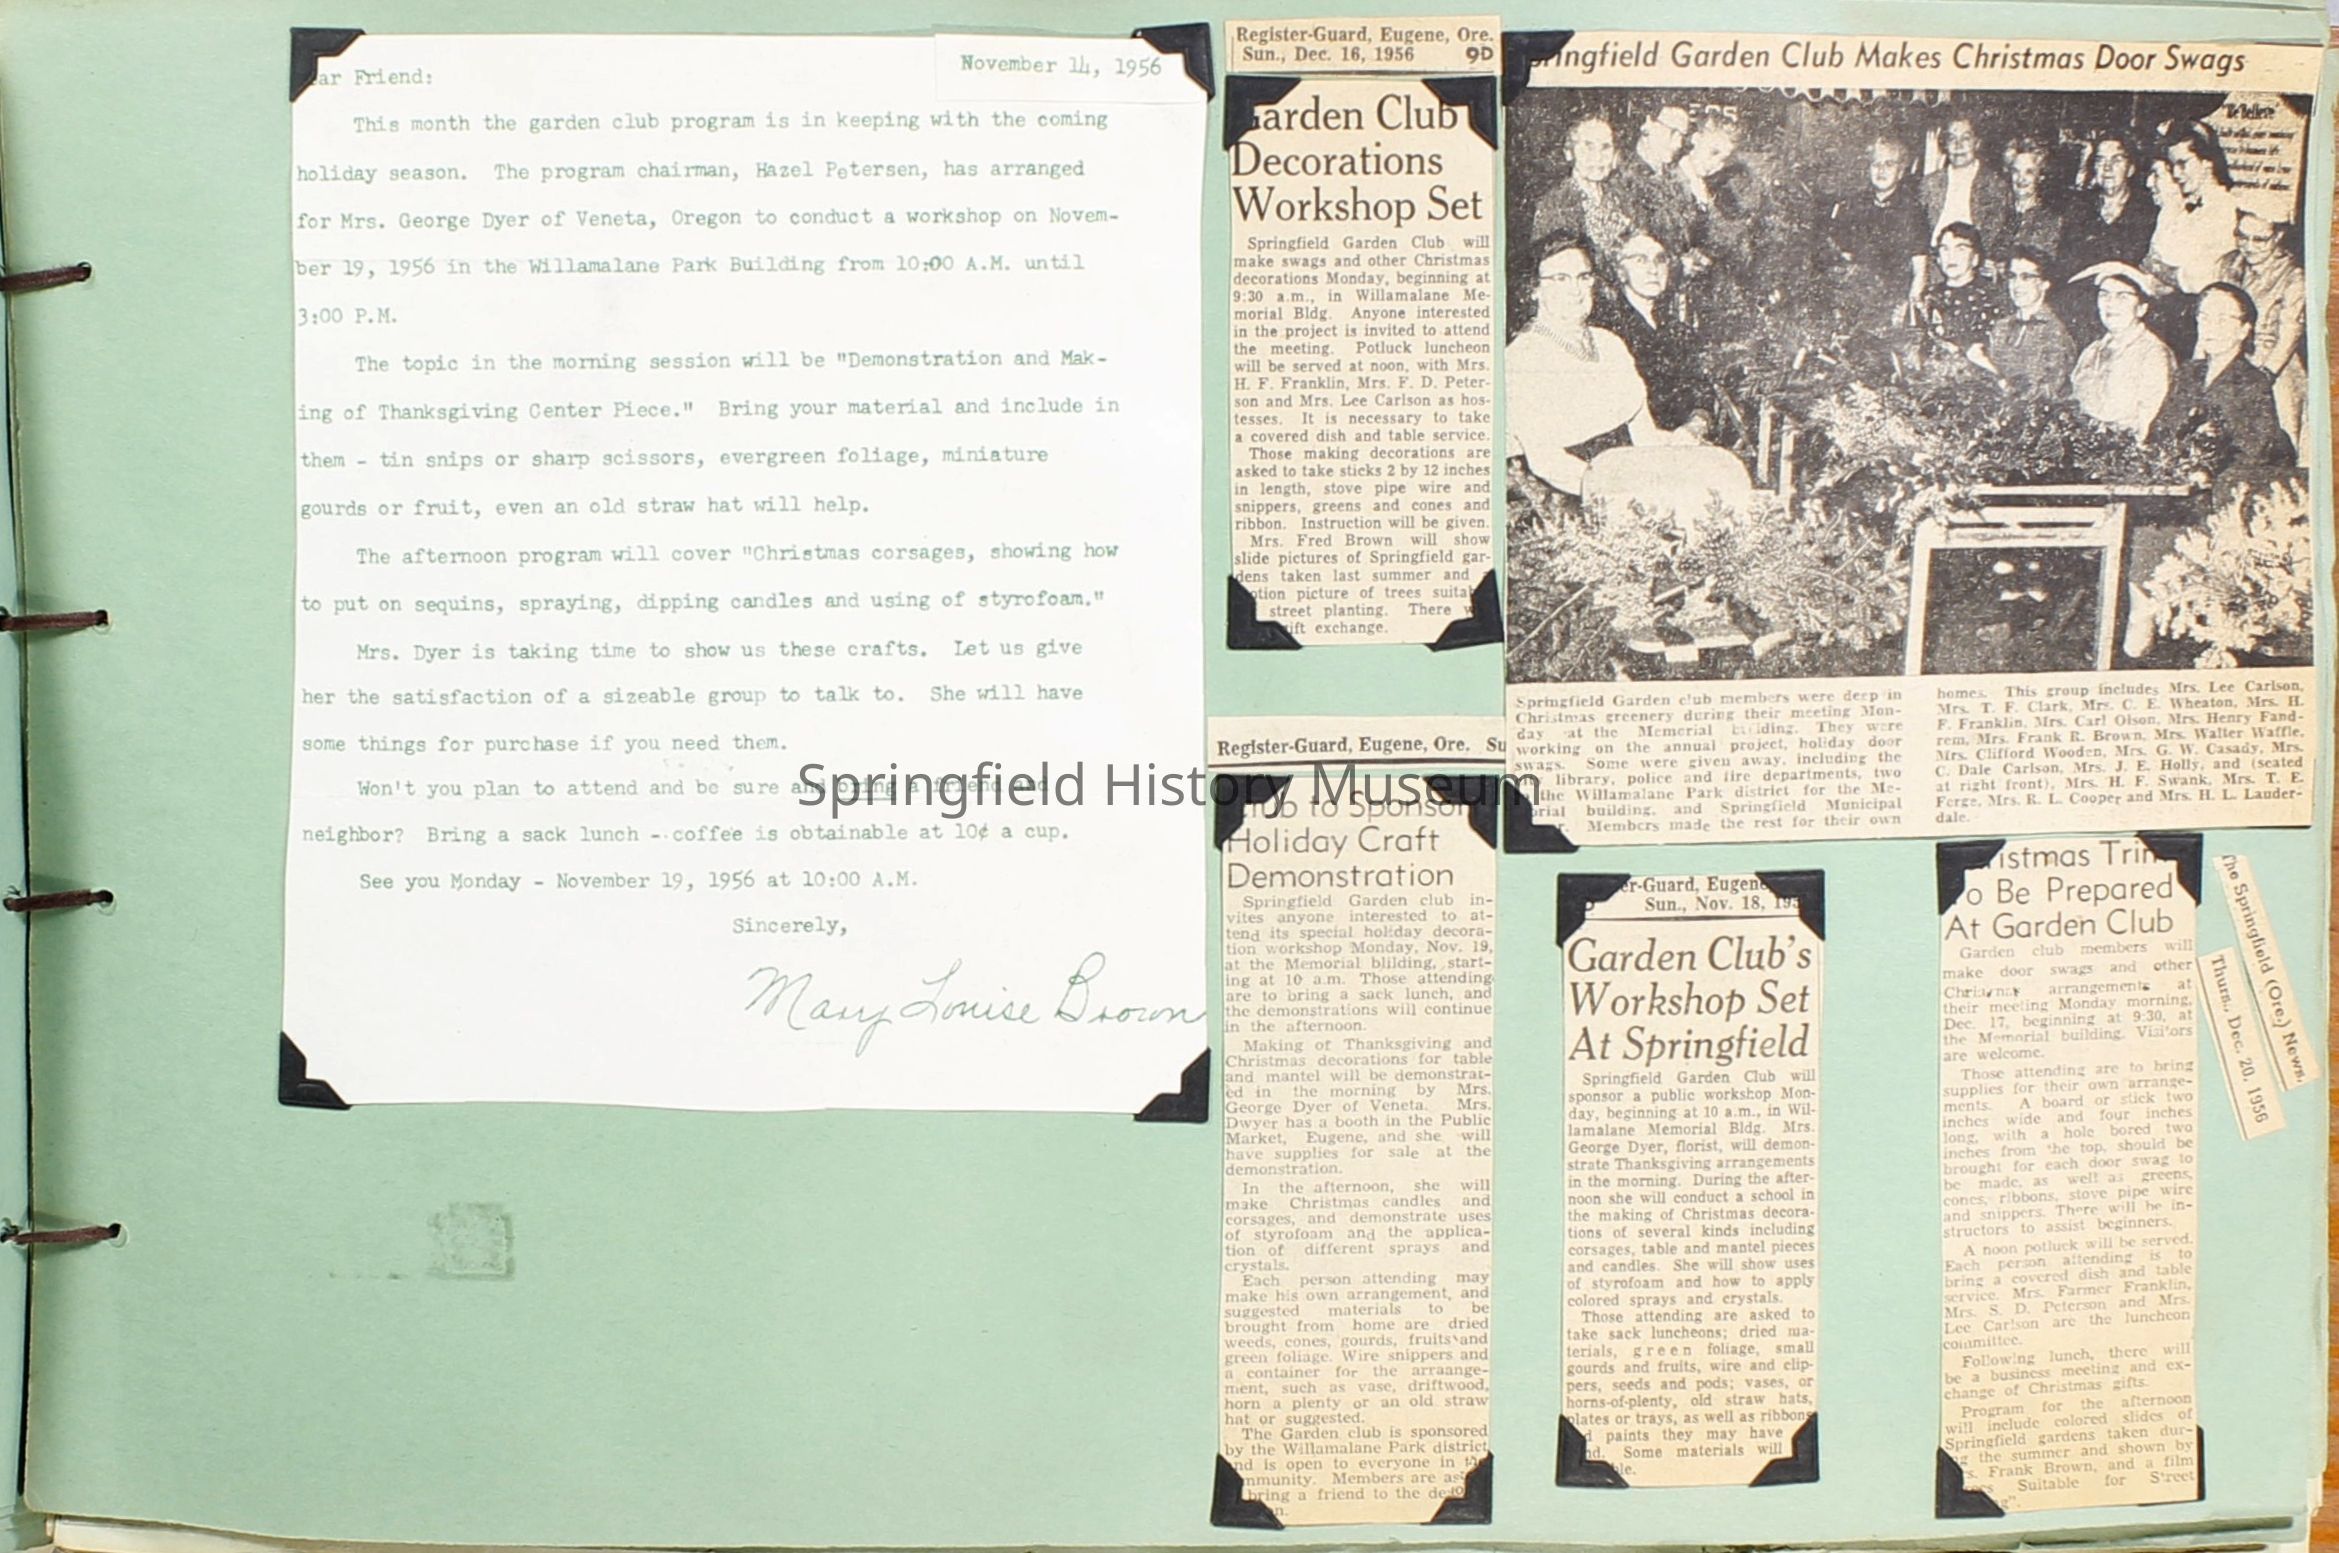 November 14, 1956
ar Friend:
This month the garden club program is in keeping with the coming
holiday season. The program chairman, Hazel Petersen, has arranged
for Mrs. George Dyer of Veneta, Oregon to conduct a workshop on Novem-
ber 19, 1956 in the Willamalane Park Building from 10:00 A.M. until
3:00 P.M.
The topic in the morning session will be "Demonstration and Mak-
ing of Thanksgiving Center Piece." Bring your material and include in
them - tin snips or sharp scissors, evergreen foliage, miniature
gourds or fruit, even an old straw hat will help.
The afternoon program will cover "Christmas corsages, showing how
to put on sequins, spraying, dipping candles and using of styrofoam."
Mrs. Dyer is taking time to show us these crafts. Let us give
her the satisfaction of a sizeable group to talk to. She will have
some things for purchase if you need them.
Won't you plan to attend and be sure and bring a friend and
neighbor? Bring a sack lunch - coffee is obtainable at 10¢ a cup.
See you Monday - November 19, 1956 at 10:00 A.M.
Sincerely,
Mary Louise Brown
Register-Guard, Eugene, Ore.
Sun., Dec. 16, 1956 9D
arden Club
Decorations
Workshop Set
Springfield Garden Club will
make swags and other Christmas
decorations Monday, beginning at
9:30 a.m., in Willamalane Me-
morial Bldg. Anyone interested
in the project is invited to attend
the meeting. Potluck luncheon
will be served at noon, with Mrs.
H. F. Franklin, Mrs. F. D. Peter-
son and Mrs. Lee Carlson as hos-
tesses. It is necessary to take
a covered dish and table service.
Those making decorations are
asked to take sticks 2 by 12 inches
in length, stove pipe wire and
snippers, greens and cones and
ribbon. Instruction will be given.
Mrs. Fred Brown will show
slide pictures of Springfield gar-
dens taken last summer and
otion picture of trees suita
street planting. There w
ift exchange.
ringfield Garden Club Makes Christmas Door Swags
We Believe
Springfield Garden club members were deep in
Christmas greenery during their meeting Mon-
day at the Memorial building. They were
working on the annual project, holiday door
swags. Some were given away, including the
library, police and fire departments, two
the Willamalane Park district for the Me-
orial building, and Springfield Municipal
Members made the rest for their own
homes. This group includes Mrs. Lee Carlson,
Mrs. T. F. Clark, Mrs. C. E. Wheaton, Mrs. H.
F. Franklin, Mrs. Carl Olson, Mrs. Henry Fand-
rem, Mrs. Frank R. Brown, Mrs. Walter Waffle,
Mrs. Clifford Wooden, Mrs. G. W. Casady, Mrs.
C. Dale Carlson, Mrs. J. E. Holly, and (seated
at right front), Mrs. H. F. Swank, Mrs. T. E.
Ferge, Mrs. R. L. Cooper and Mrs. H. L. Lauder-
dale.
Register-Guard, Eugene, Ore. Su
lub to Sponsor
Holiday Craft
Demonstration
Springfield Garden club in-
vites anyone interested to at-
tend its special holiday decora-
tion workshop Monday, Nov. 19,
at the Memorial blilding, start-
ing at 10 a.m. Those attending
are to bring a sack lunch, and
the demonstrations will continue
in the afternoon.
Making of Thanksgiving and
Christmas decorations for table
and mantel will be demonstrat-
ed in the morning by Mrs.
George Dyer of Veneta. Mrs.
Dwyer has a booth in the Public
Market, Eugene, and she will
have supplies for sale at the
demonstration.
In the afternoon, she will
make Christmas candles and
corsages, and demonstrate uses
of styrofoam and the applica-
tion of different sprays and
crystals.
Each person attending may
make his own arrangement, and
suggested materials to be
brought from home are dried
weeds, cones, gourds, fruits and
green foliage. Wire snippers and
a container for the arraange-
ment, such as vase, driftwood,
horn a plenty or an old straw
hat or suggested.
The Garden club is sponsored
by the Willamalane Park district
nd is open to everyone in
mmunity. Members are as
bring a friend to the de
n.
er-Guard, Eugene
Sun., Nov. 18, 195
Garden Club's
Workshop Set
At Springfield
Springfield Garden Club will
sponsor a public workshop Mon-
day, beginning at 10 a.m., in Wil-
lamalane Memorial Bldg. Mrs.
George Dyer, florist, will demon-
strate Thanksgiving arrangements
in the morning. During the after-
noon she will conduct a school in
the making of Christmas decora-
tions of several kinds including
corsages, table and mantel pieces
and candles. She will show uses
of styrofoam and how to apply
colored sprays and crystals.
Those attending are asked to
take sack luncheons; dried ma-
terials, green foliage, small
gourds and fruits, wire and clip-
pers, seeds and pods; vases, or
horns-of-plenty, old straw hats,
plates or trays, as well as ribbons
d paints they may have
nd. Some materials will
ble.
ristmas Trim
To Be Prepared
At Garden Club
Garden club members will
make door swags and other
Christmas arrangements at
their meeting Monday morning,
Dec. 17, beginning at 9:30, at
the Memorial building. Visitors
are welcome.
Those attending are to bring
supplies for their own arrange-
ments. A board or stick two
inches wide and four inches
long, with a hole bored two
inches from the top, should be
brought for each door swag to
be made, as well as greens,
cones, ribbons, stove pipe wire
and snippers. There will be in-
structors to assist beginners.
A noon potluck will be served.
Each person attending is to
bring a covered dish and table
service. Mrs. Farmer Franklin,
Mrs. S. D. Peterson and Mrs.
Lee Carlson are the luncheon
committee.
Following lunch, there will
be a business meeting and ex-
change of Christmas gifts.
Program for the afternoon
will include colored slides of
Springfield gardens taken dur-
g the summer and shown by
s. Frank Brown, and a film
Suitable for Street
g".
The Springfield (Ore.) News,
Thurs., Dec. 20, 1956
Springfield History Museum